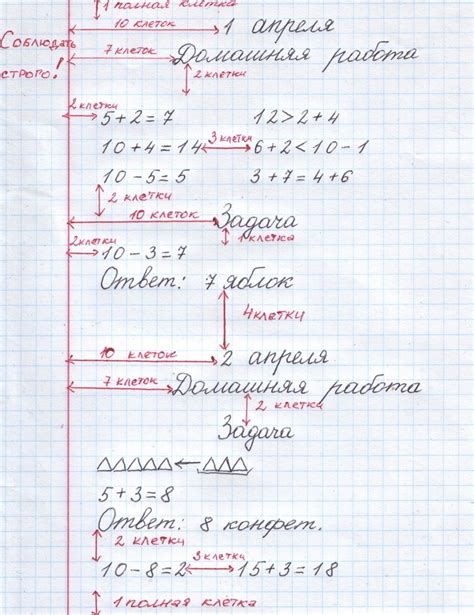 1 полная клетка
10 клеток 1 апреля
Соблюдать
строго!
7 клеток Домашняя работа
2 клетки
2 клетки
5+2=7 12>2+4
10+4=14 3 клетки 6+2<10-1
10-5=5 3+7=4+6
2 клетки
10 клеток Задача
1 клетка
2 клетки
10-3=7
Ответ: 7 яблок
4 клетки
10 клеток 2 апреля
7 клеток Домашняя работа
2 клетки
Задача
5+3=8
Ответ: 8 конфет.
2 клетки
10-8=2 3 клетки 15+3=18
1 полная клетка